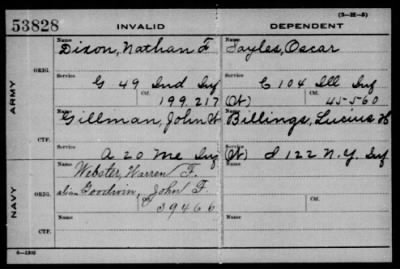 (3-H-5)
53828 INVALID DEPENDENT
Name Name
Dixon, Nathan F Sayles, Oscar
ORIG. Service Service
G 49 Ind Inf C 104 Ill Inf
Ctf. Ctf.
199.217 45560
ARMY
Name Name
Gillman, John Billings, Lucius
CTF. Service Service
A 20 Me Inf I 122 N.Y. Inf
Name Name
Webster, Warren F.
NAVY ORIG.
alias Goodwin, John F.
Ctf.
39466
CTF.
6-1202